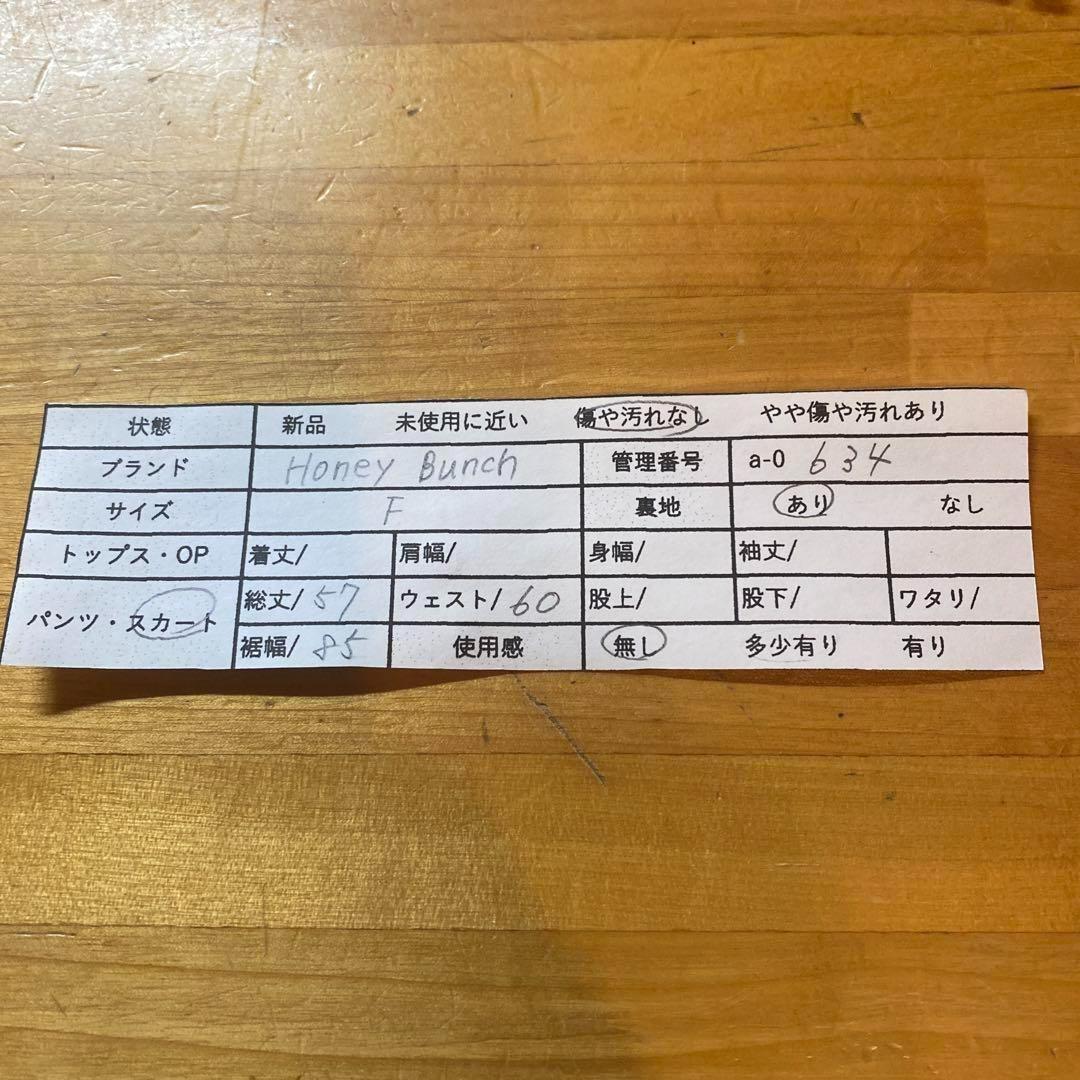 状態 新品 未使用に近い 傷や汚れなし やや傷や汚れあり
ブランド Honey Bunch 管理番号 a-0 634
サイズ F 裏地 あり なし
トップス・OP 着丈/ 肩幅/ 身幅/ 袖丈/
パンツ・スカート 総丈/57 ウェスト/60 股上/ 股下/ ワタリ/
裾幅/85 使用感 無し 多少有り 有り